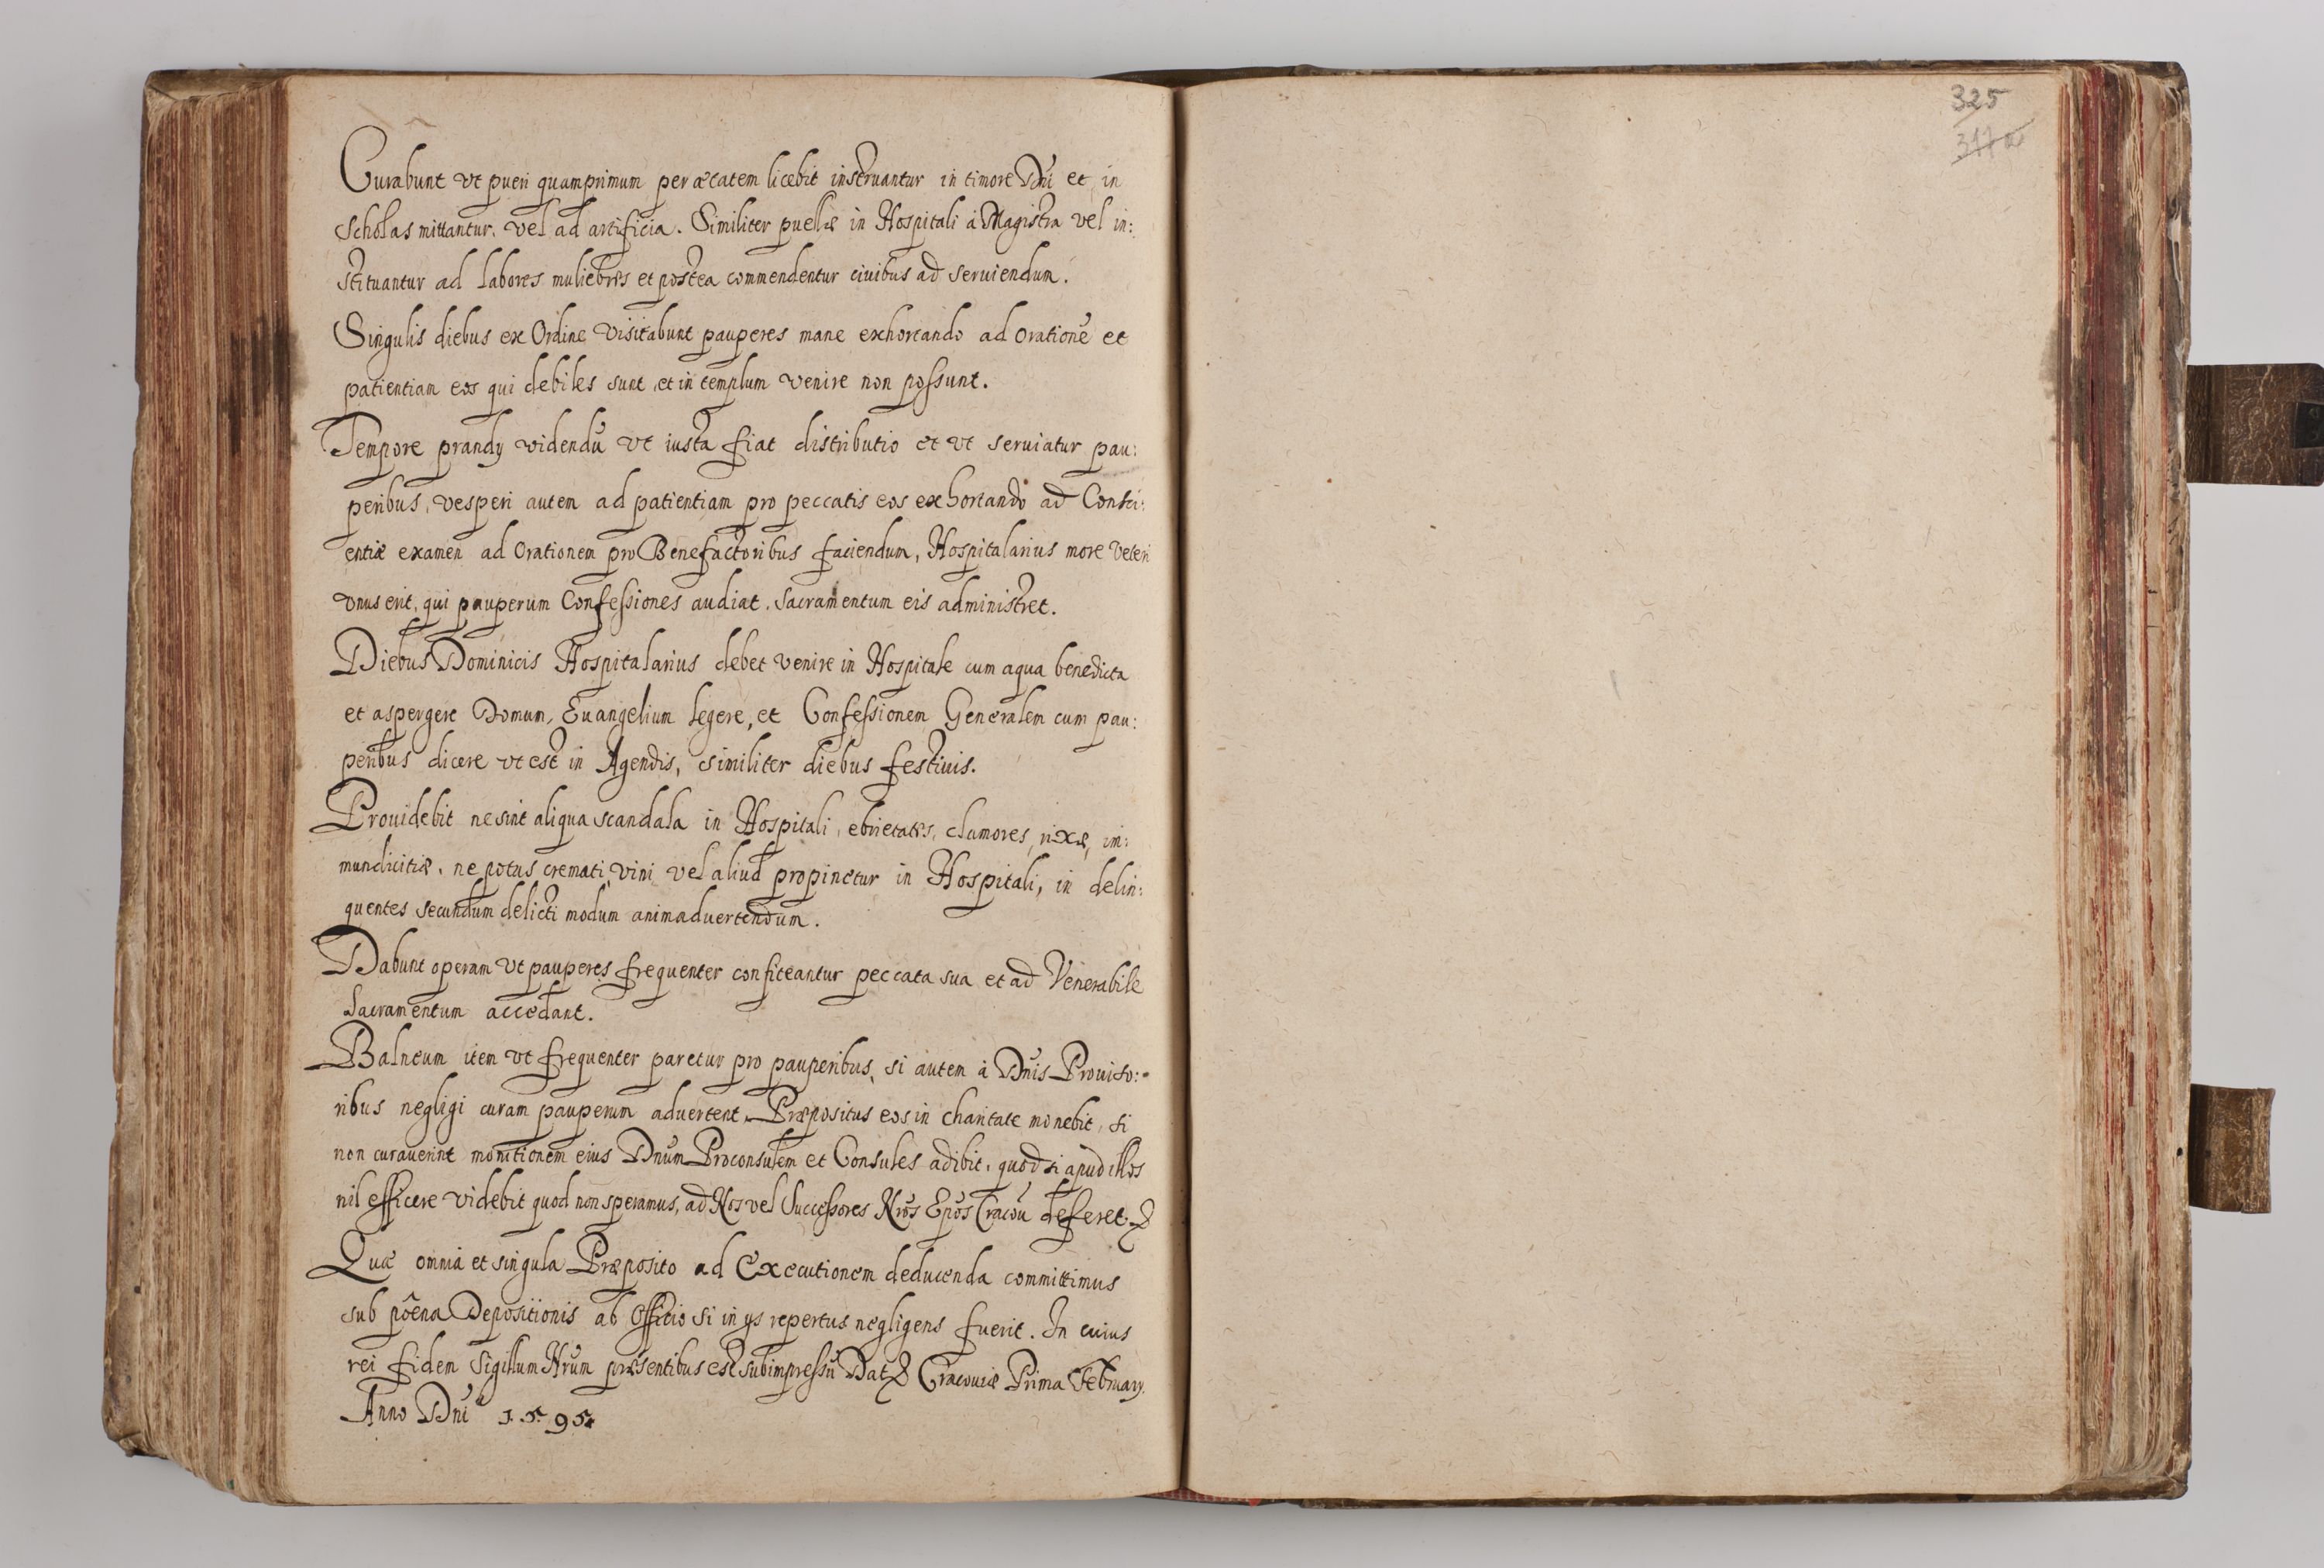 Curabunt vt pueri quamprimum per ætatem licebit instruantur in timore Dnī et in
scholas mittantur, vel ad artificia. Similiter puellæ in Hospitali à Magistra vel in:
stituantur ad labores muliebres et postea commendentur ciuibus ad seruiendum.
Singulis diebus ex Ordine visitabunt pauperes mane exhortando ad orationē et
patientiam eos qui debiles sunt, et in templum venire non possunt.
Tempore prandy videndū vt iusta fiat distributio et vt seruiatur pau:
peribus, vesperi autem ad patientiam pro peccatis eos exhortando ad Consci:
entiæ examen ad orationem pro Benefactoribus faciendum, Hospitalarius more veteri
vnus erit, qui pauperum Confessiones audiat, sacramentum eis administret.
Diebus Dominicis Hospitalarius debet venire in Hospitale cum aqua benedicta
et aspergere Domum, Euangelium legere, et Confessionem Generalem cum pau:
peribus dicere vt est in Agendis, similiter diebus festiuis.
Prouidebit ne sint aliqua scandala in Hospitali, ebrietates, clamores, rixæ, im:
mundicitiæ, ne potus cremati vini vel aliud propinetur in Hospitali, in delin:
quentes secundum delicti modum animaduertendum.
Dabunt operam vt pauperes frequenter confiteantur peccata sua et ad Venerabile
Sacramentum accedant.
Balneum item vt frequenter paretur pro pauperibus, si autem à Dnīs Prouiso:
ribus negligi curam pauperum aduertent, Præpositus eos in charitate monebit, si
non curauerint monitionem eius Dnūm Proconsulem et Consules adibit, quod si apud illos
nil efficere videbit quod non speramus, ad Nos vel Successores Nrōs Epōs Cracoū deferet.
Quæ omnia et singula Præposito ad Executionem deducenda committimus
sub pœna Depositionis ab Officio si in ys repertus negligens fuerit. In cuius
rei fidem Sigillum Nrūm præsentibus est subimpressū Dat Cracouiæ Prima February.
Anno Dnī 1.5.95.
325
317a